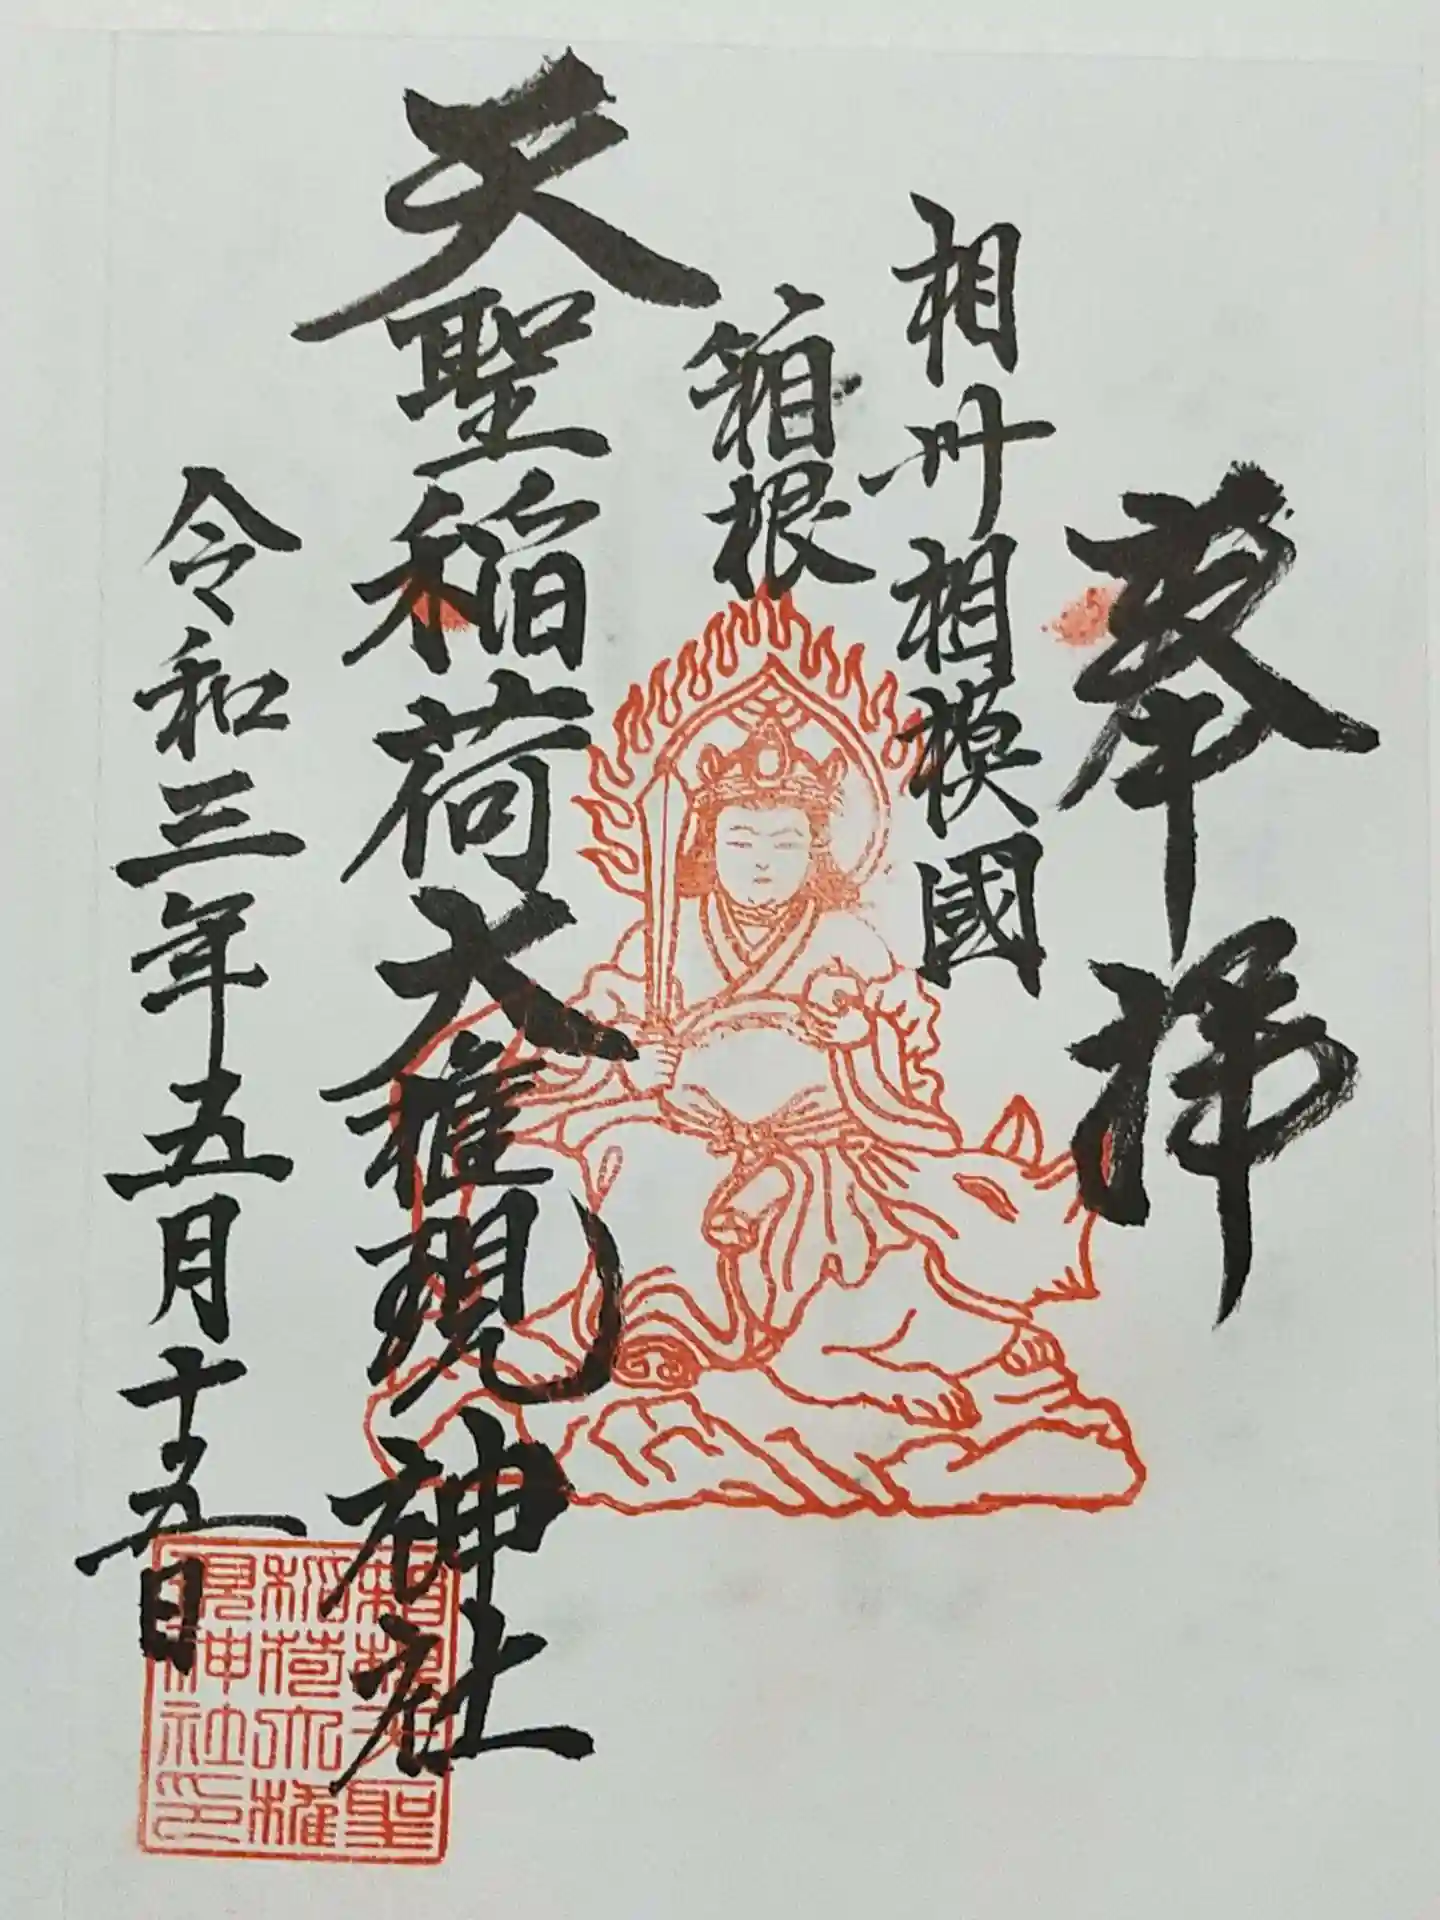 奉拝
相州相模國
箱根
天聖稲荷大権現神社
令和三年五月十九日
箱根天聖
稲荷大権
現神社印